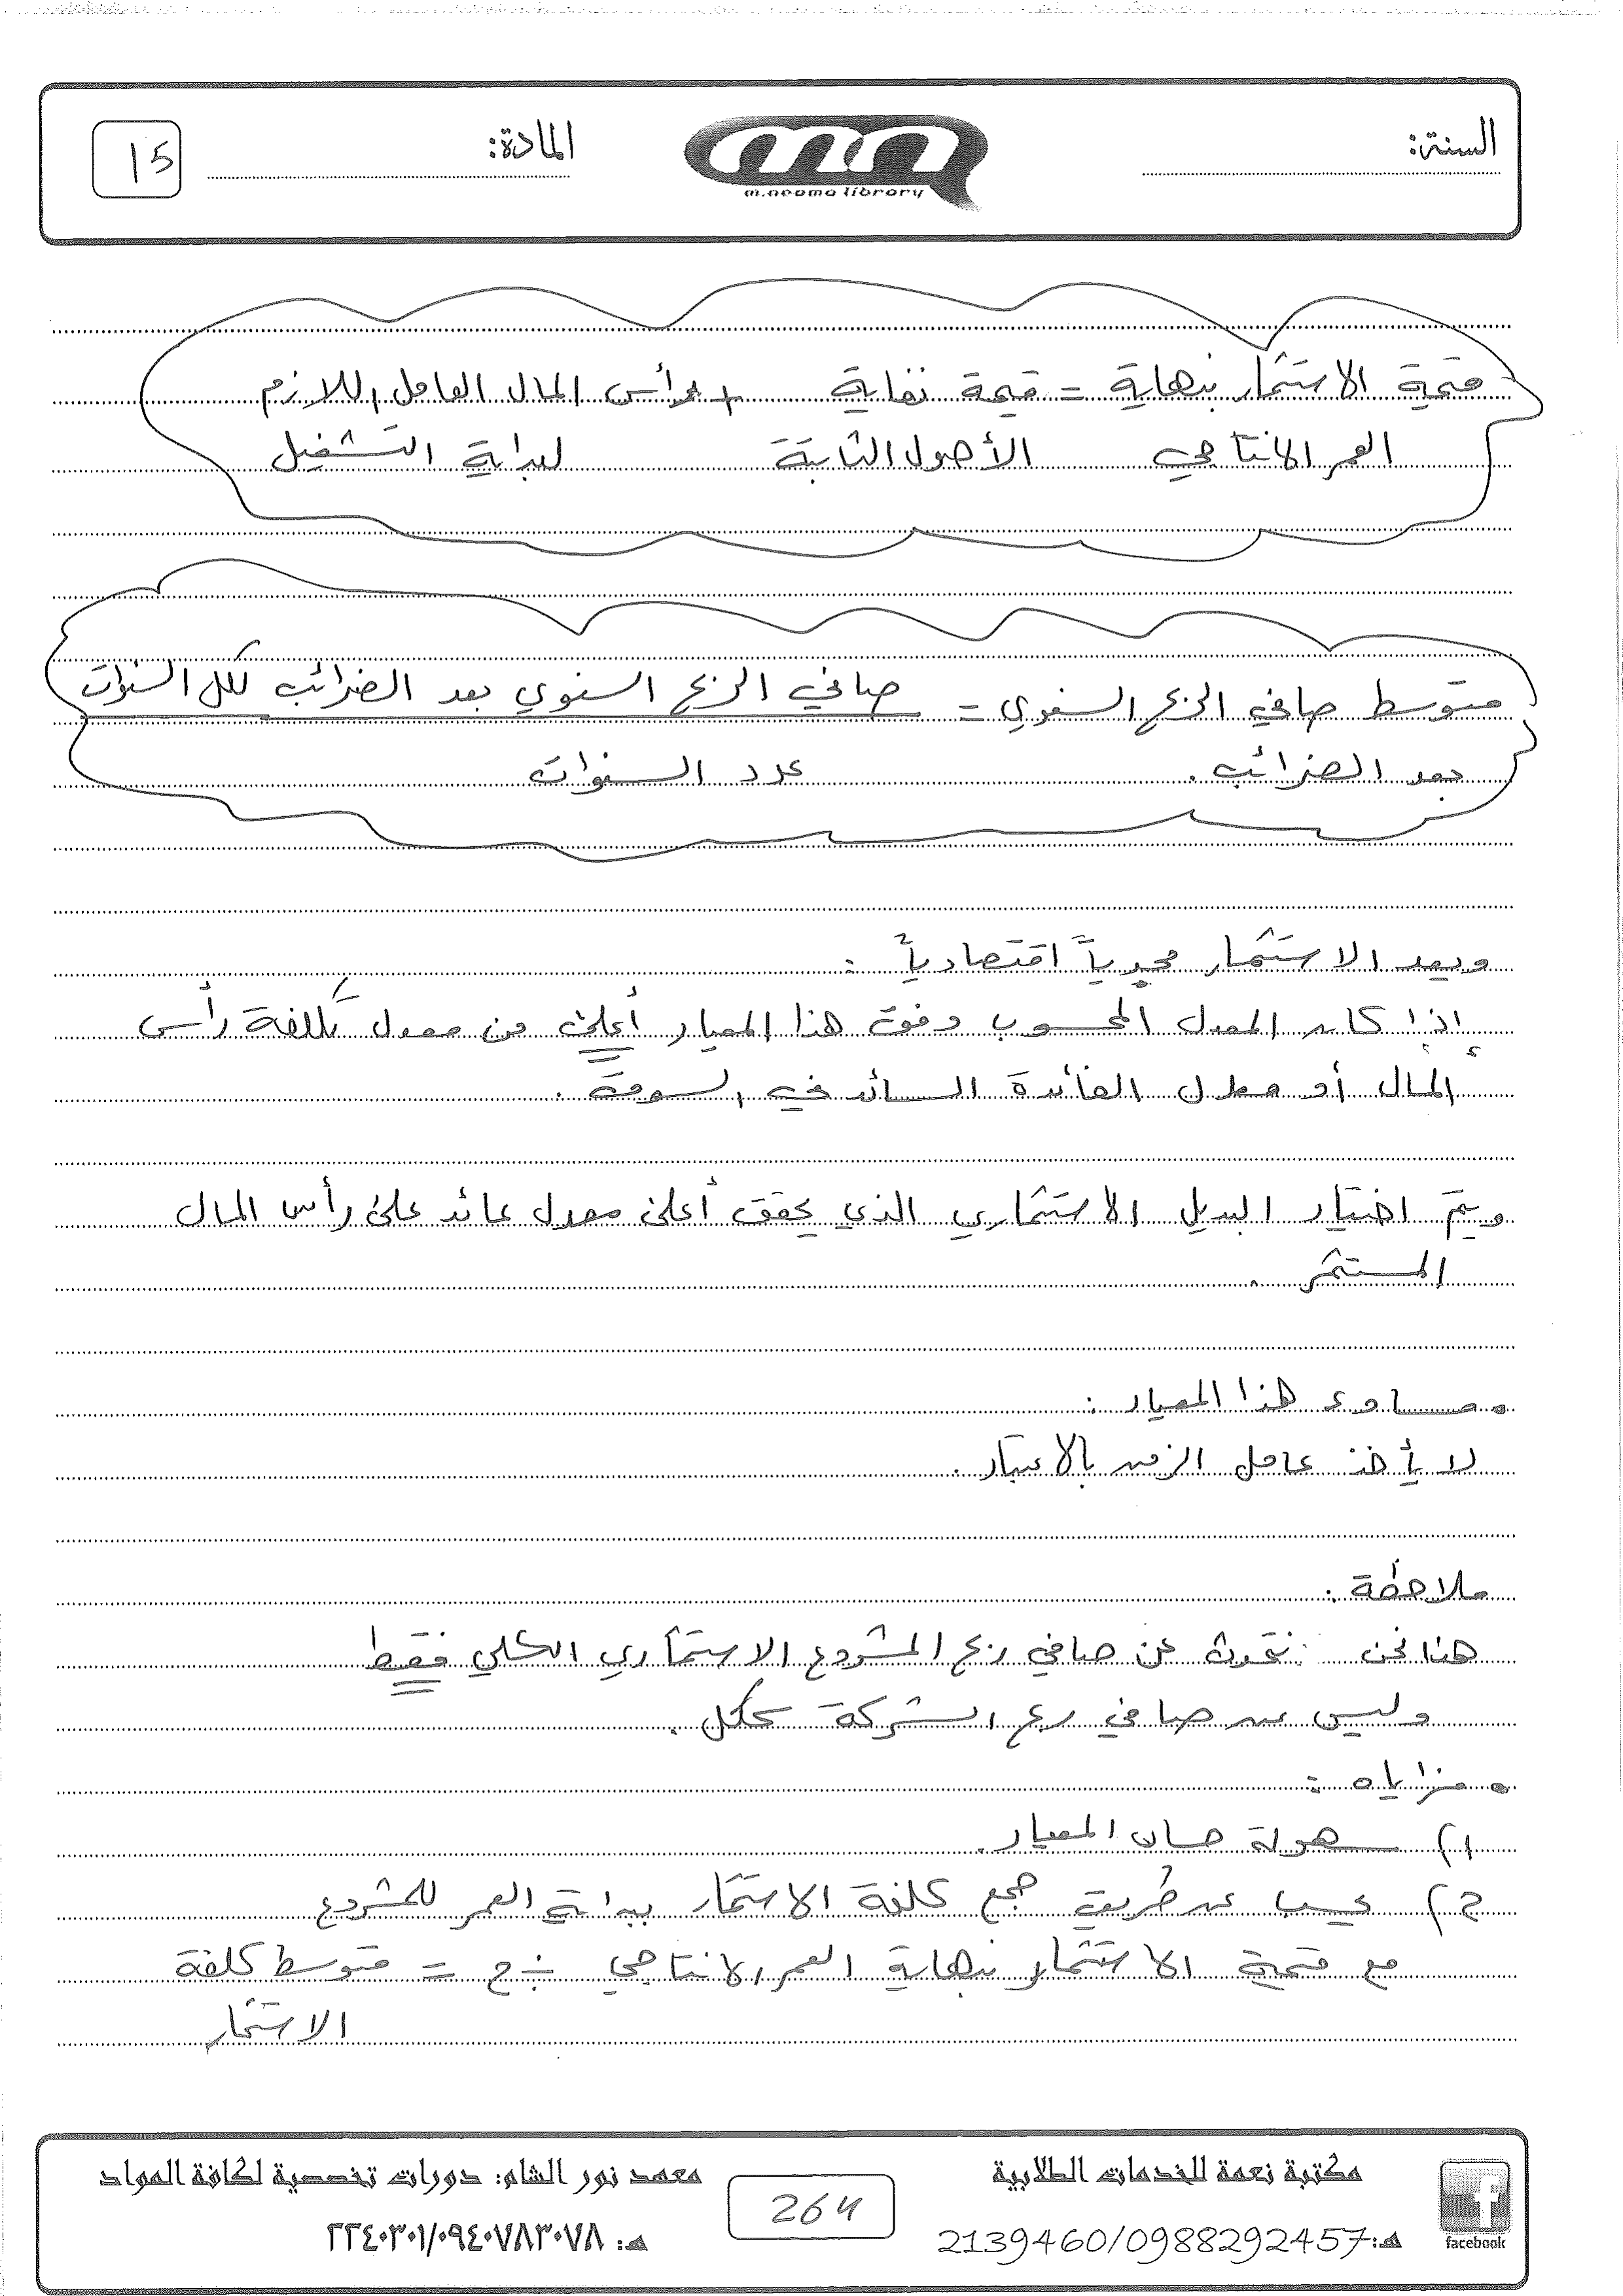 السنة:
m.neama library
المادة:
15
قيمة الاستثمار بنهاية = قيمة نفاية + رأس المال العامل اللازم
العمر الانتاجي الأصول الثابتة لبداية التشغيل
متوسط صافي الربح السنوي = صافي الربح السنوي بعد الضرائب لكل السنوات
بعد الضرائب . عدد السنوات
ويعد الاستثمار مجدياً اقتصادياً :
إذا كان المعدل المحسوب وفق هذا المعيار أعلى من معدل تكلفة رأس
المال أو معدل الفائدة السائد في السوق .
ويتم اختيار البديل الاستثماري الذي يحقق أعلى معدل عائد على رأس المال
المستثمر .
• مساوئ هذا المعيار :
لا يأخذ عامل الزمن بالاعتبار .
ملاحظة :
هنا نحن نتحدث عن صافي ربح المشروع الاستثماري الكلي فقط
وليس عن صافي ربح الشركة ككل .
• مزاياه :
1) سهولة حساب المعيار .
2) يحسب عن طريق جمع كلفة الاستثمار ببداية العمر للمشروع
مع قيمة الاستثمار بنهاية العمر الانتاجي ÷ 2 = متوسط كلفة
الاستثمار
مكتبة نعمة للخدمات الطلابية
هـ: 2139460/0988292457
facebook
264
معهد نور الشام: دورات تخصصية لكافة المواد
هـ: ٢٢٤٠٣٠١/٠٩٤٠٧٨٣٠٧٨